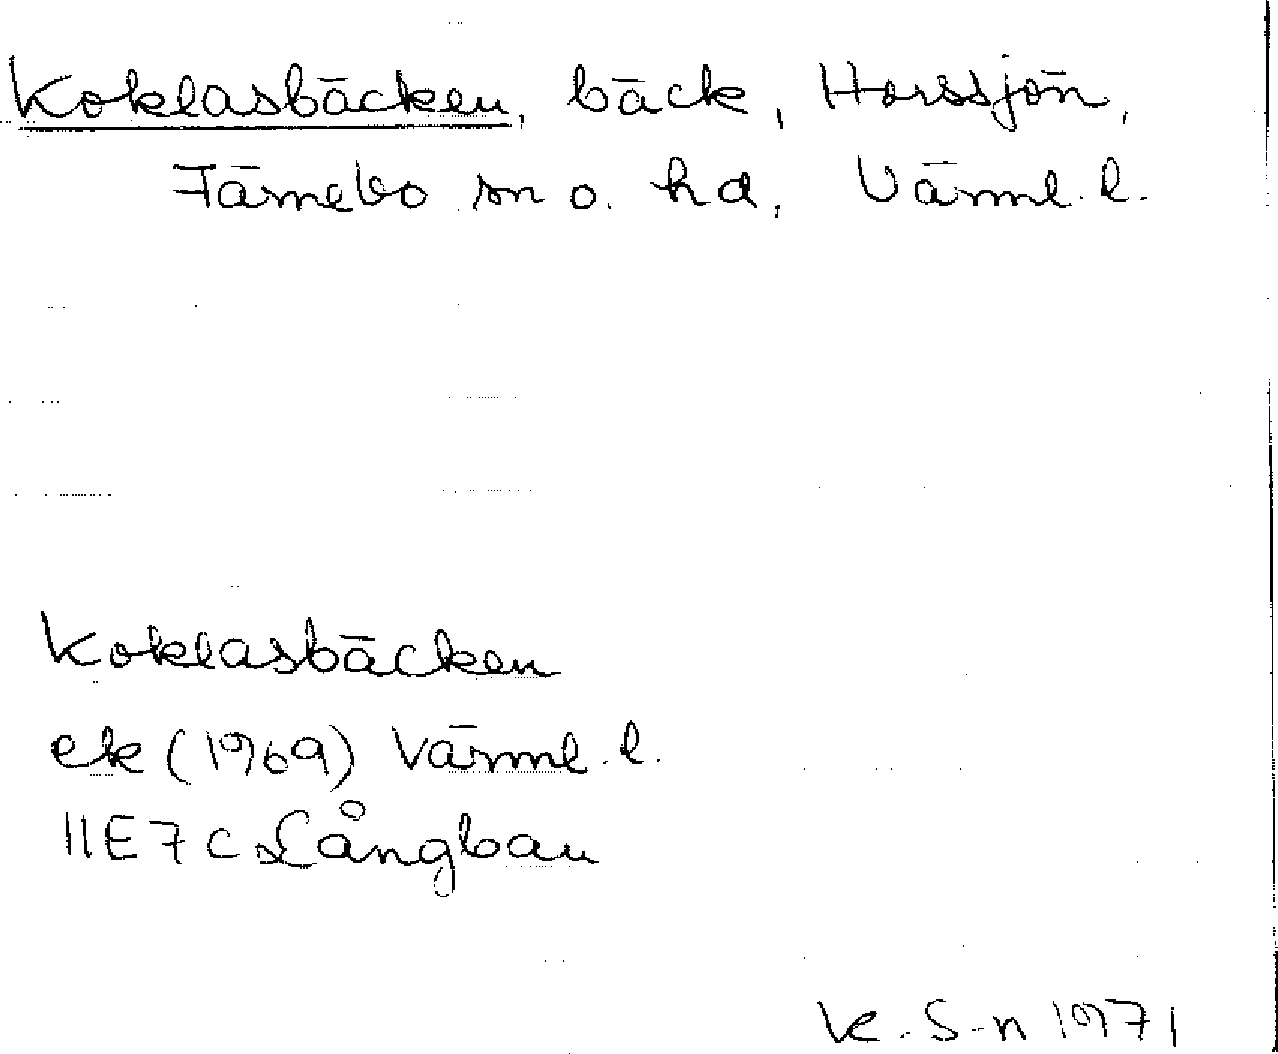 Koklasbäcken, bäck, Horssjön,
Färnebo sn o. hd, Värml. l.
Koklasbäcken
ek (1969) Värml. l.
11E7c Långban
K. S-n 1971